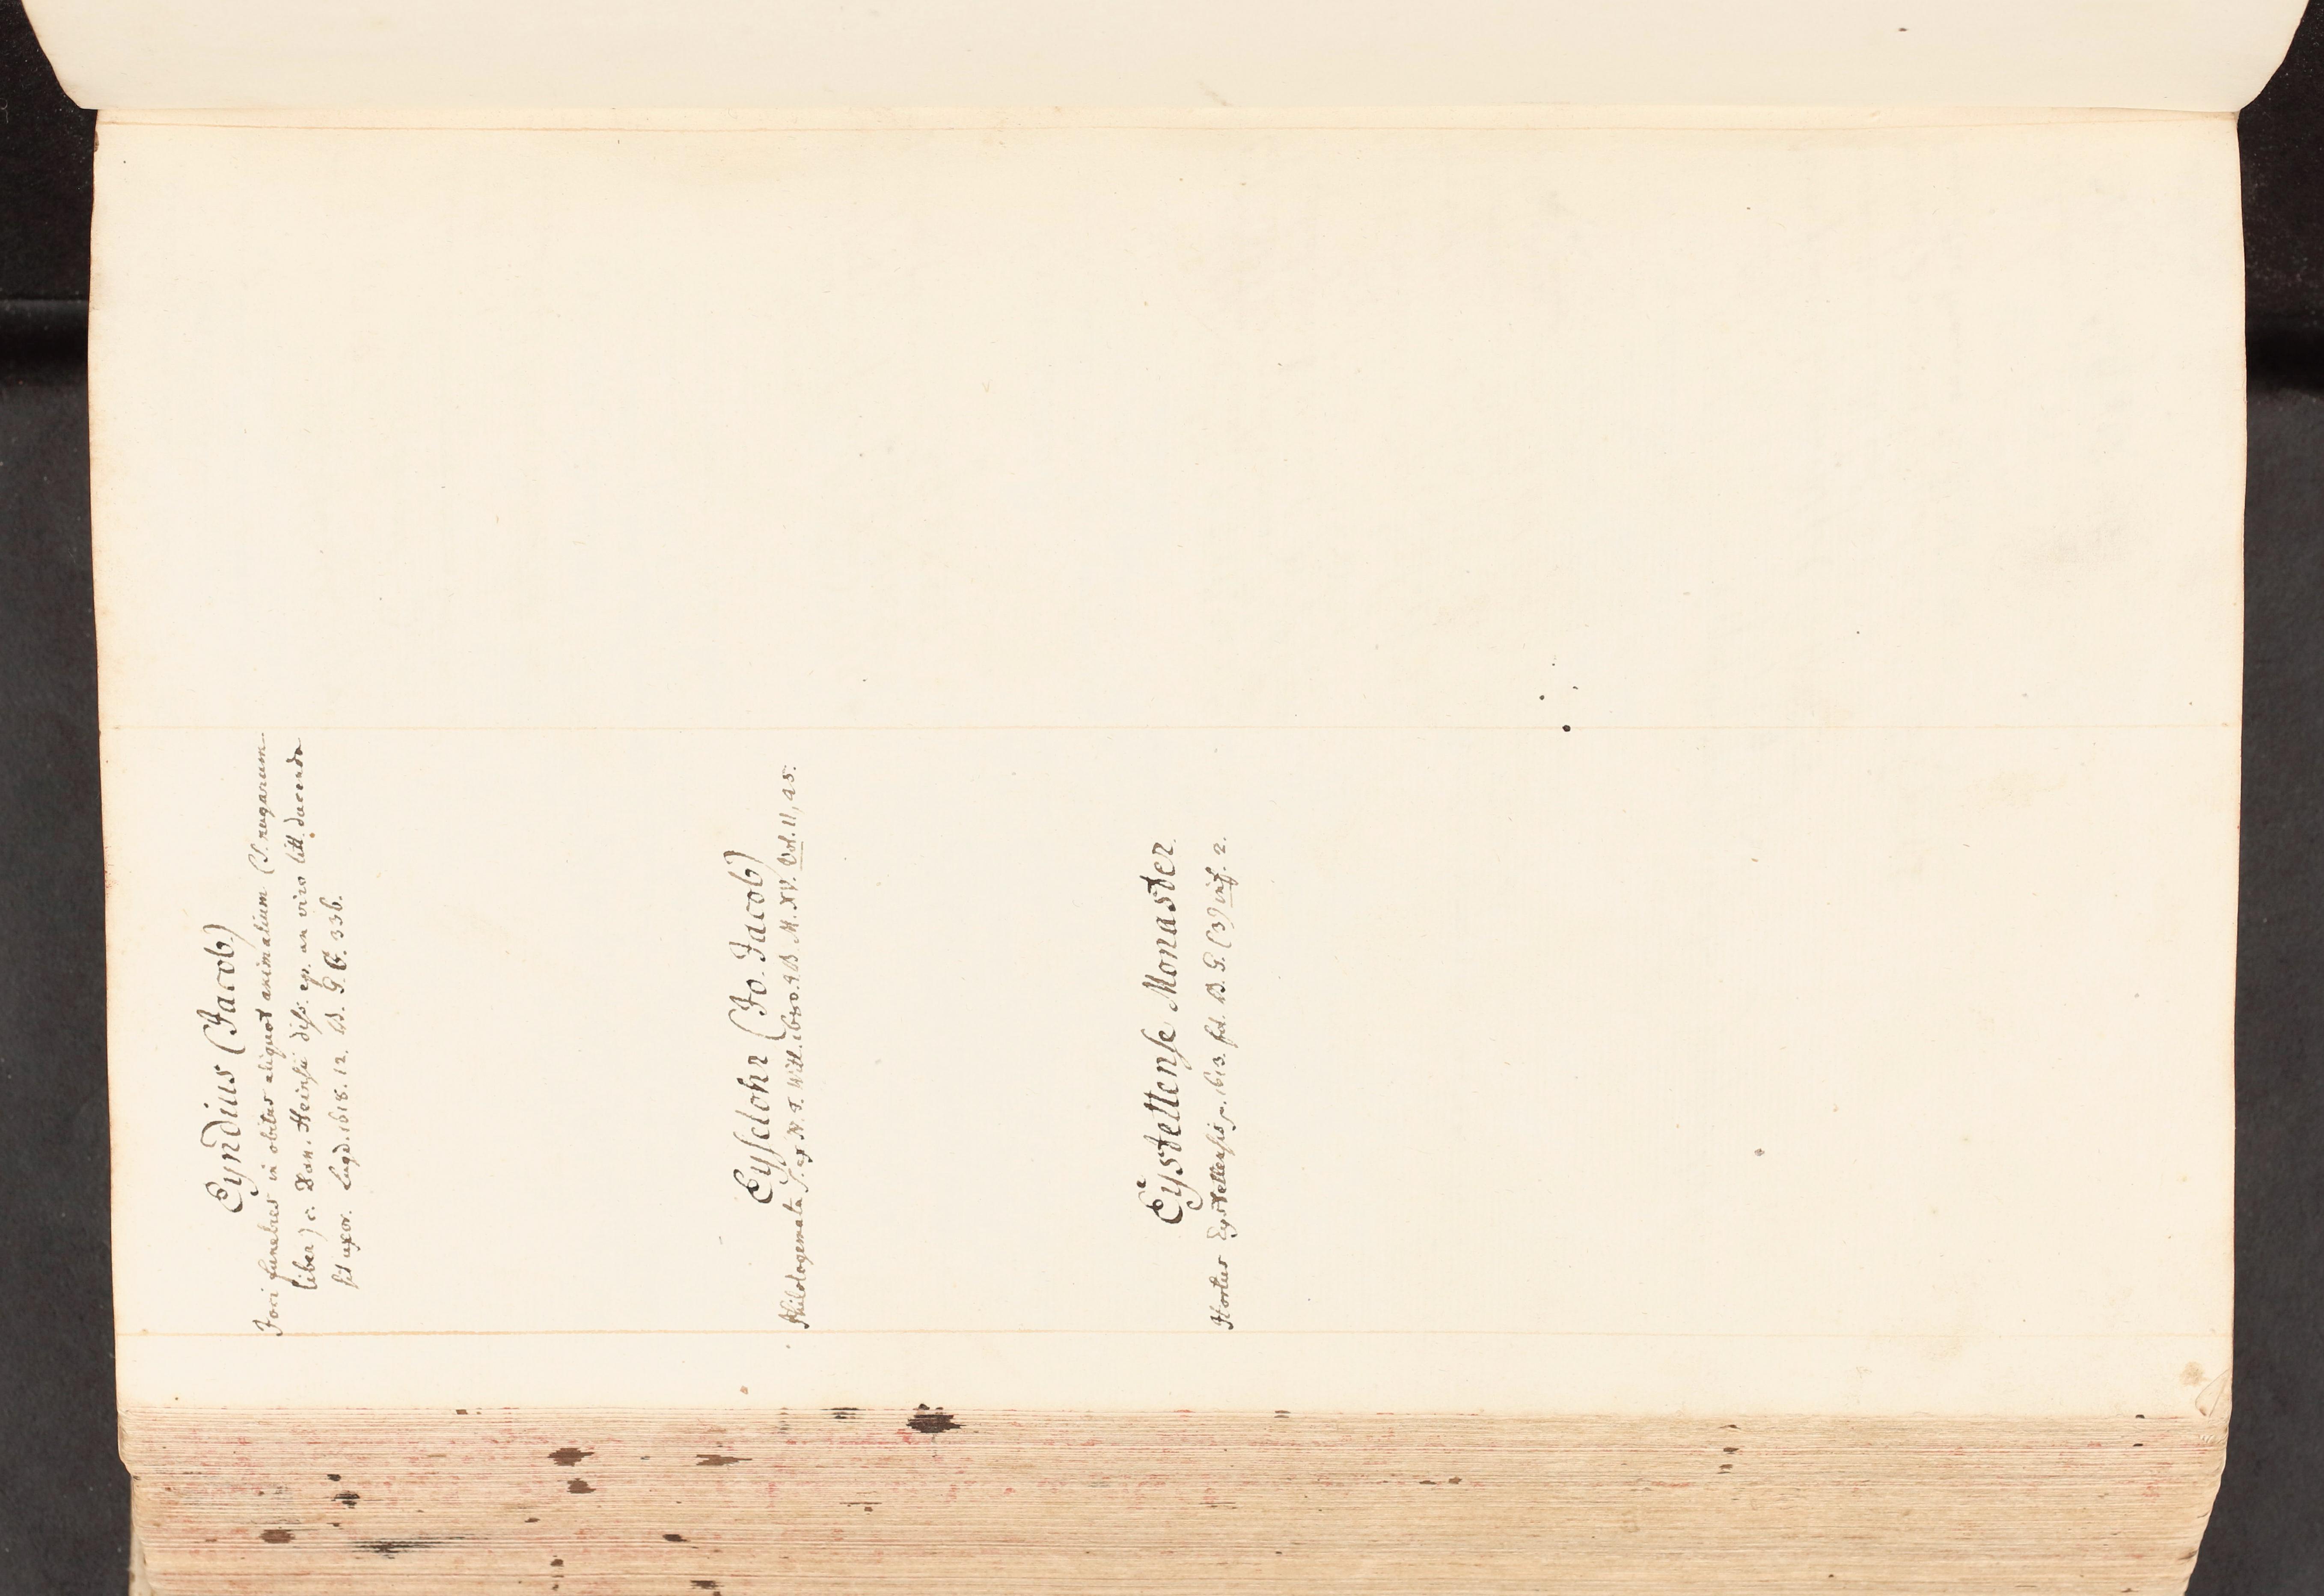 Eyndius (Jacob.)
Joci funebres in obitus aliquot animalium (s. nugarum
liber) c. Dan. Heinsii diss. ep. an viro litt. ducenda
sit uxor. Lugd. 1618. 12. B. G. 336.
Eyselohr (Jo. Jacob)
Philologemata S. ex N. T. Witt. B. M. XV. Vol. 11, 25.
Eystettense Monaster.
Hortus Eystettensis, 1613. fol. B. G. (3) inf. 2.